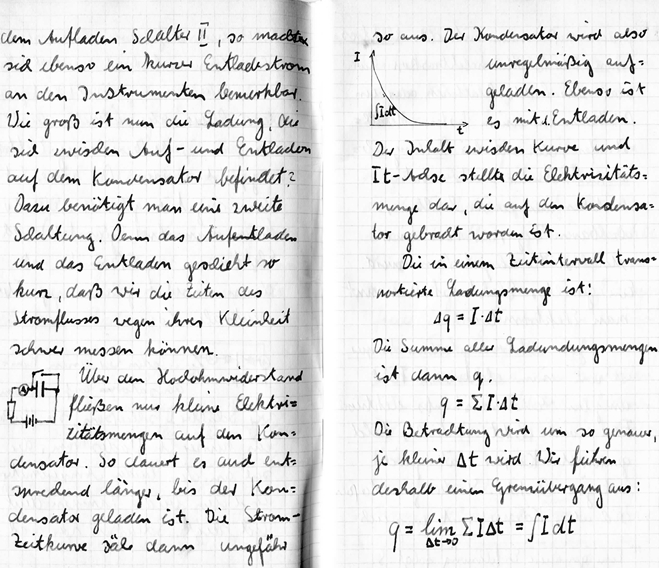 dem Aufladen Schalter II, so machte
sich ebenso ein kurzer Entladestrom
an den Instrumenten bemerkbar.
Wie groß ist nun die Ladung, die
sich zwischen Auf- und Entladen
auf dem Kondensator befindet?
Dazu benötigt man eine zweite
Schaltung. Denn das Aufentladen
und das Entladen geschieht so
kurz, daß wir die Zeiten des
Stromflusses wegen ihrer Kleinheit
schwer messen können.
Über den Hochohmwiderstand
fließen nur kleine Elektri=
zitätsmengen auf den Kon=
densator. So dauert es auch ent=
sprechend länger, bis der Kon=
densator geladen ist. Die Strom-
Zeitkurve säh dann ungefähr
A
so aus. Der Kondensator wird also
unregelmäßig auf=
geladen. Ebenso ist
es mit d. Entladen.
I
∫Idt
t
Der Inhalt zwischen Kurve und
It-Achse stellte die Elektrizitäts=
menge dar, die auf den Kondensa=
tor gebracht worden ist.
Die in einem Zeitintervall trans=
portierte Ladungsmenge ist:
Δq = I·Δt
Die Summe aller Ladundungsmengen
ist dann q.
q = ΣI·Δt
Die Betrachtung wird um so genauer,
je kleiner Δt wird. Wir führen
deshalb einen Grenzübergang aus:
q = lim ΣIΔt = ∫Idt
Δt→0